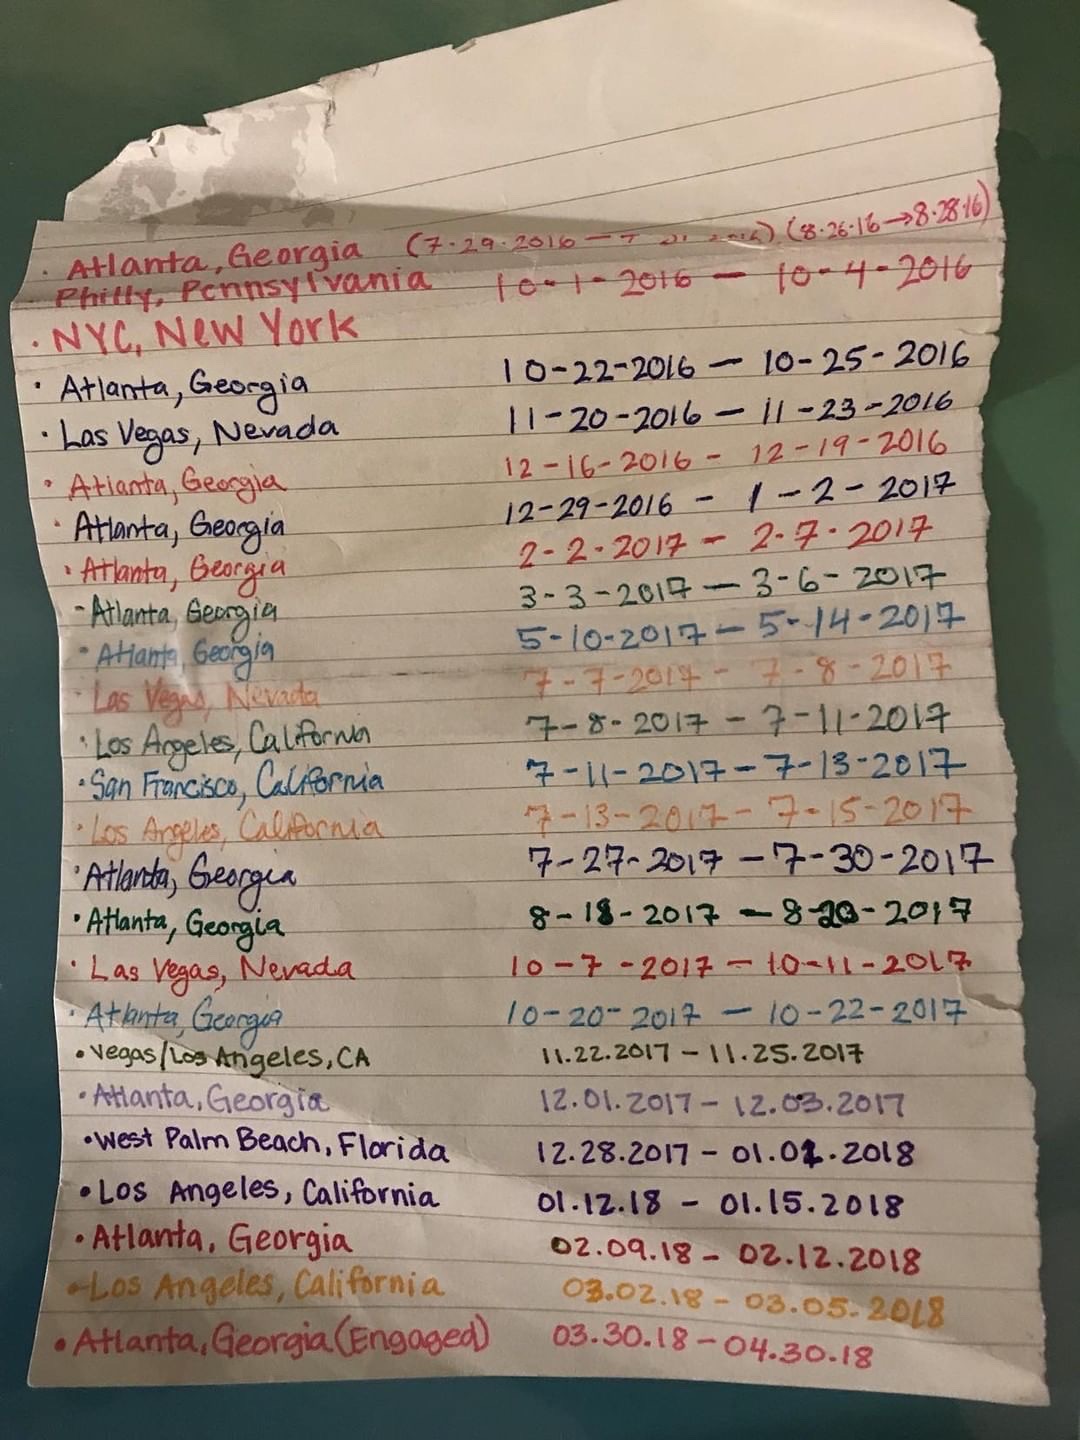 · Atlanta, Georgia (7.29.2016 — 7 2016), (8.26.16 → 8.28.16)
Philly, Pennsylvania 10-1-2016 — 10-4-2016
· NYC, New York
· Atlanta, Georgia 10-22-2016 — 10-25-2016
· Las Vegas, Nevada 11-20-2016 — 11-23-2016
· Atlanta, Georgia 12-16-2016 - 12-19-2016
· Atlanta, Georgia 12-29-2016 - 1-2-2017
· Atlanta, Georgia 2-2-2017 - 2-7-2017
- Atlanta, Georgia 3-3-2017 — 3-6-2017
- Atlanta, Georgia 5-10-2017 — 5-14-2017
- Las Vegas, Nevada 7-7-2017 - 7-8-2017
· Los Angeles, California 7-8-2017 - 7-11-2017
· San Francisco, California 7-11-2017 - 7-13-2017
· Los Angeles, California 7-13-2017 - 7-15-2017
· Atlanta, Georgia 7-27-2017 — 7-30-2017
· Atlanta, Georgia 8-18-2017 — 8-20-2017
· Las Vegas, Nevada 10-7-2017 — 10-11-2017
· Atlanta, Georgia 10-20-2017 — 10-22-2017
· Vegas/Los Angeles, CA 11.22.2017 - 11.25.2017
· Atlanta, Georgia 12.01.2017 - 12.03.2017
· West Palm Beach, Florida 12.28.2017 - 01.02.2018
· Los Angeles, California 01.12.18 - 01.15.2018
· Atlanta, Georgia 02.09.18 - 02.12.2018
· Los Angeles, California 03.02.18 - 03.05.2018
· Atlanta, Georgia (Engaged) 03.30.18 - 04.30.18